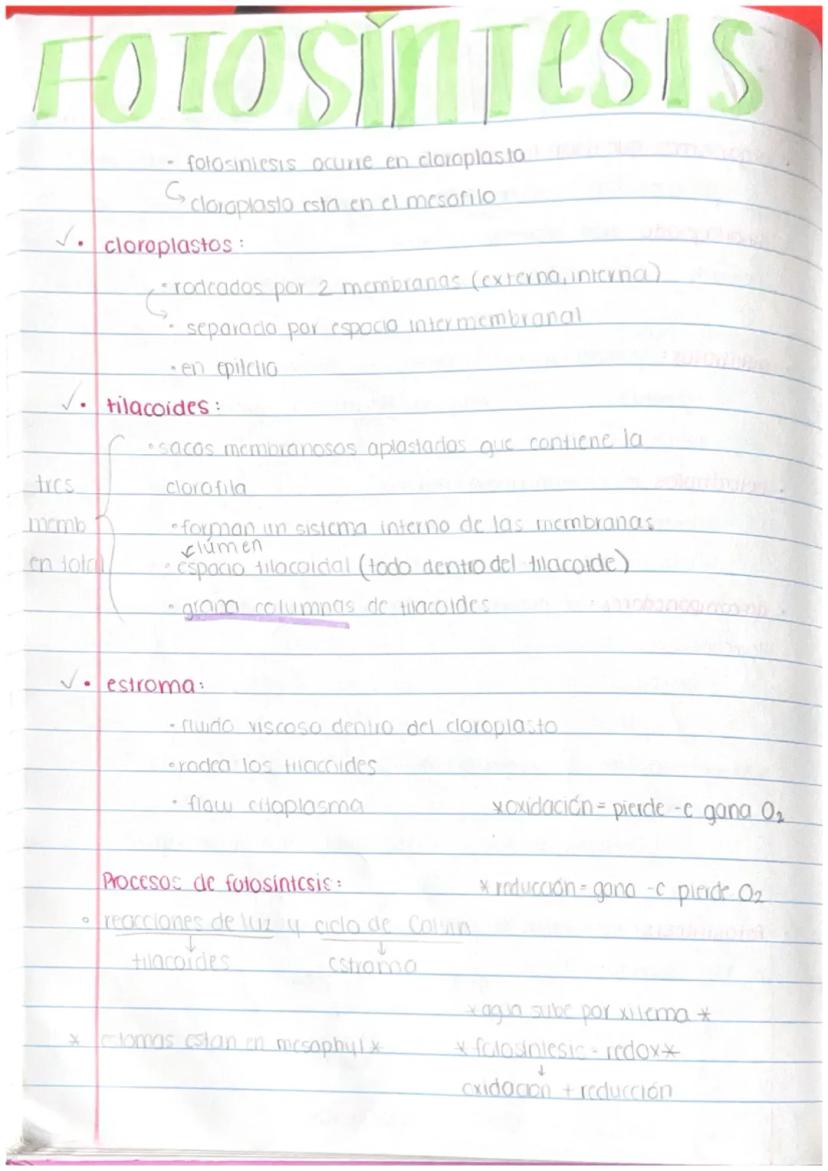 FOTOSÍNTESIS
- fotosintesis ocurre en cloroplasto
cloroplasto esta en el mesofilo
✓• cloroplastos:
• rodeados por 2 membranas (externa, interna)
• separacia por espacio intermembranal
• en
✓• tilacoides:
• sacos membranosos aplastados que contiene la
clorofila
• forman un sistema interno de las membranas
lúmen
• espacio tilacoidal (todo dentro del tilacoide)
• grana columnas de tilacoides
tres
memb
en total
✓• estroma:
• fluido viscoso dentro del cloroplasto
• rodea los tilacoides
• citoplasma
*oxidación = pierde -e gana O₂
Procesos de fotosíntesis:
* reducción = gana -e pierde O₂
• reacciones de luz y ciclo de Calvin
↓ ↓
tilacoides estroma
* agua sube por xilema *
* estomas estan en mesophyl *
* fotosintesis = redox *
↓
oxidacion + reducción